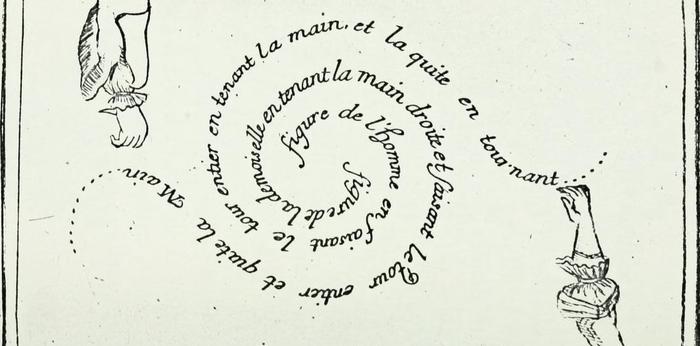 figure de l'homme en faisant le tour entier en tenant la main, et la quite en tournant
figure de la demoiselle en tenant la main droite et faisant le Tour entier et quite la Main